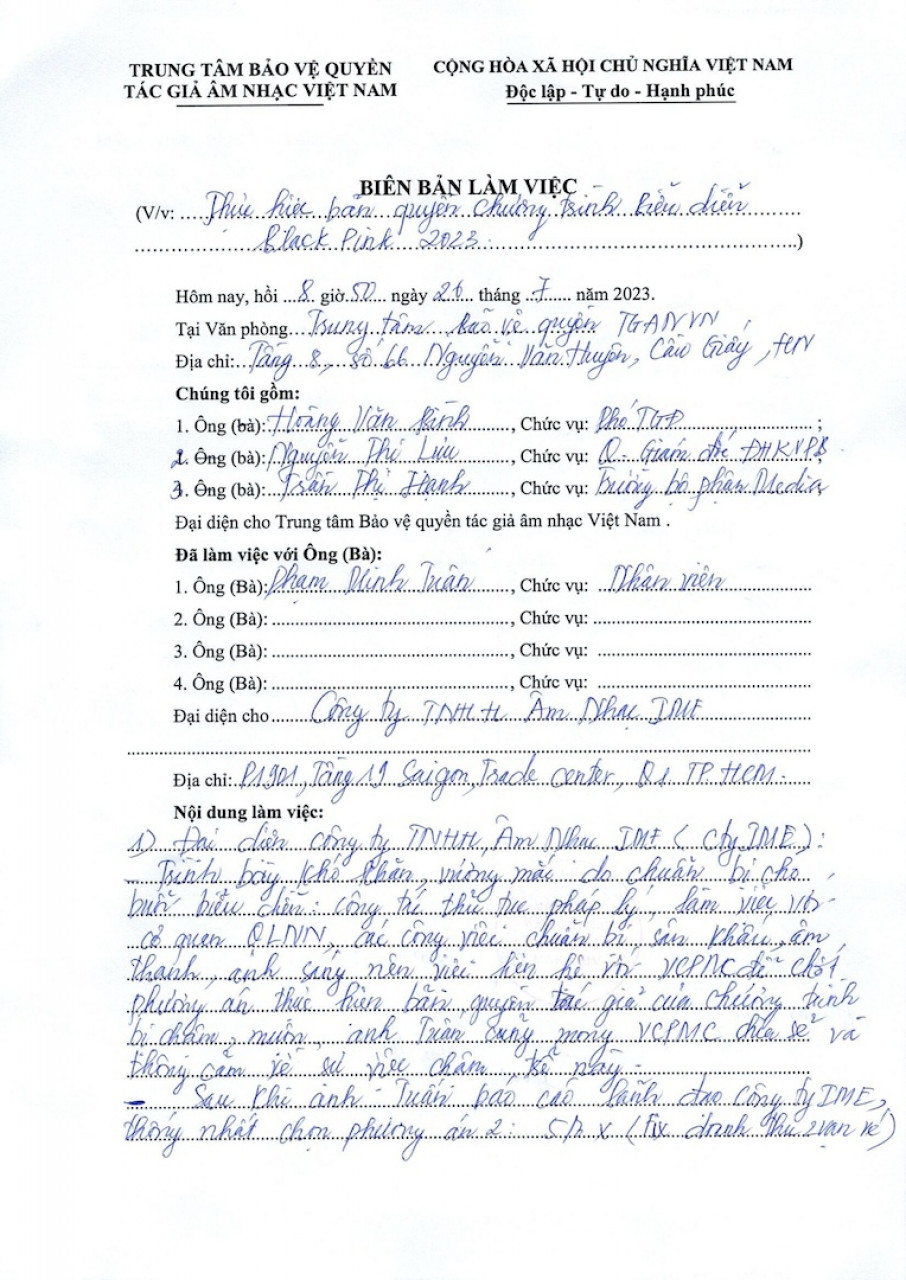 TRUNG TÂM BẢO VỆ QUYỀN
TÁC GIẢ ÂM NHẠC VIỆT NAM
CỘNG HÒA XÃ HỘI CHỦ NGHĨA VIỆT NAM
Độc lập - Tự do - Hạnh phúc
BIÊN BẢN LÀM VIỆC
(V/v: Thực hiện bản quyền chương trình biểu diễn
Black Pink 2023.)
Hôm nay, hồi 8 giờ 50 ngày 26 tháng 7 năm 2023.
Tại Văn phòng Trung tâm bảo vệ quyền TGANVN
Địa chỉ: Tầng 8, số 66 Nguyễn Văn Huyên, Cầu Giấy, HN
Chúng tôi gồm:
1. Ông (bà): Hoàng Văn Bình, Chức vụ: Phó TGĐ ;
2. Ông (bà): Nguyễn Thị Lưu, Chức vụ: Q. Giám đốc
3. Ông (bà): Trần Thị Hạnh, Chức vụ: Trưởng bộ phận Media
Đại diện cho Trung tâm Bảo vệ quyền tác giả âm nhạc Việt Nam .
Đã làm việc với Ông (Bà):
1. Ông (Bà): Phạm Minh Tuân, Chức vụ: Nhân viên
2. Ông (Bà): , Chức vụ:
3. Ông (Bà): , Chức vụ:
4. Ông (Bà): , Chức vụ:
Đại diện cho Công ty TNHH Âm Nhạc IME
Địa chỉ: P1901, Tầng 19 Saigon, Trade center, Q1 TP. HCM.
Nội dung làm việc:
1) Đại diện công ty TNHH Âm Nhạc IME (cty IME):
- Trình bày khó khăn, vướng mắc do chuẩn bị cho
buổi biểu diễn: công tác thủ tục pháp lý, làm việc với
cơ quan QLNN, các công việc chuẩn bị sân khấu, âm
thanh, ánh sáng nên việc liên hệ với VCPMC để chốt
phương án thực hiện bản quyền tác giả của chương trình
bị chậm, muộn, anh Tuân cũng mong VCPMC chia sẻ và
thông cảm về sự việc chậm trễ này.
- Sau khi anh Tuân báo cáo lãnh đạo công ty IME,
thống nhất chọn phương án 2: 5% x (fix doanh thu 2 vạn vé)